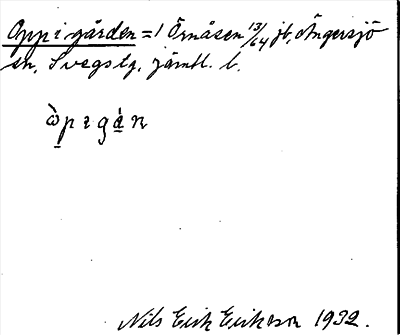 Opp i gården = 1 Örnåsen 13/64 jb, Ängersjö
sn, Svegs tg, jämtl. l.
ὼpıgȧ́n
Nils Erik Erikson 1932.